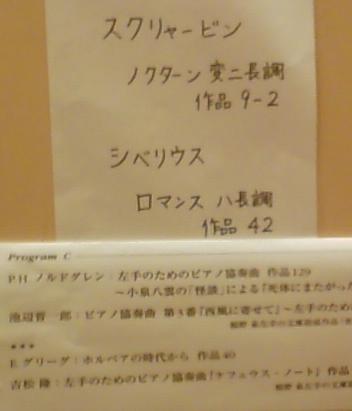 スクリャービン
ノクターン 変ニ長調
作品 9-2
シベリウス
ロマンス ハ長調
作品 42
Program C
P.H. ノルドグレン：左手のためのピアノ協奏曲 作品129
～小泉八雲の「怪談」による「死体にまたがっ
池辺晋一郎：ピアノ協奏曲 第3番「西風に寄せて」～左手のため
***
E.グリーグ：ホルベアの時代から 作品40
吉松 隆：左手のためのピアノ協奏曲「ケフェウス・ノート」 作品